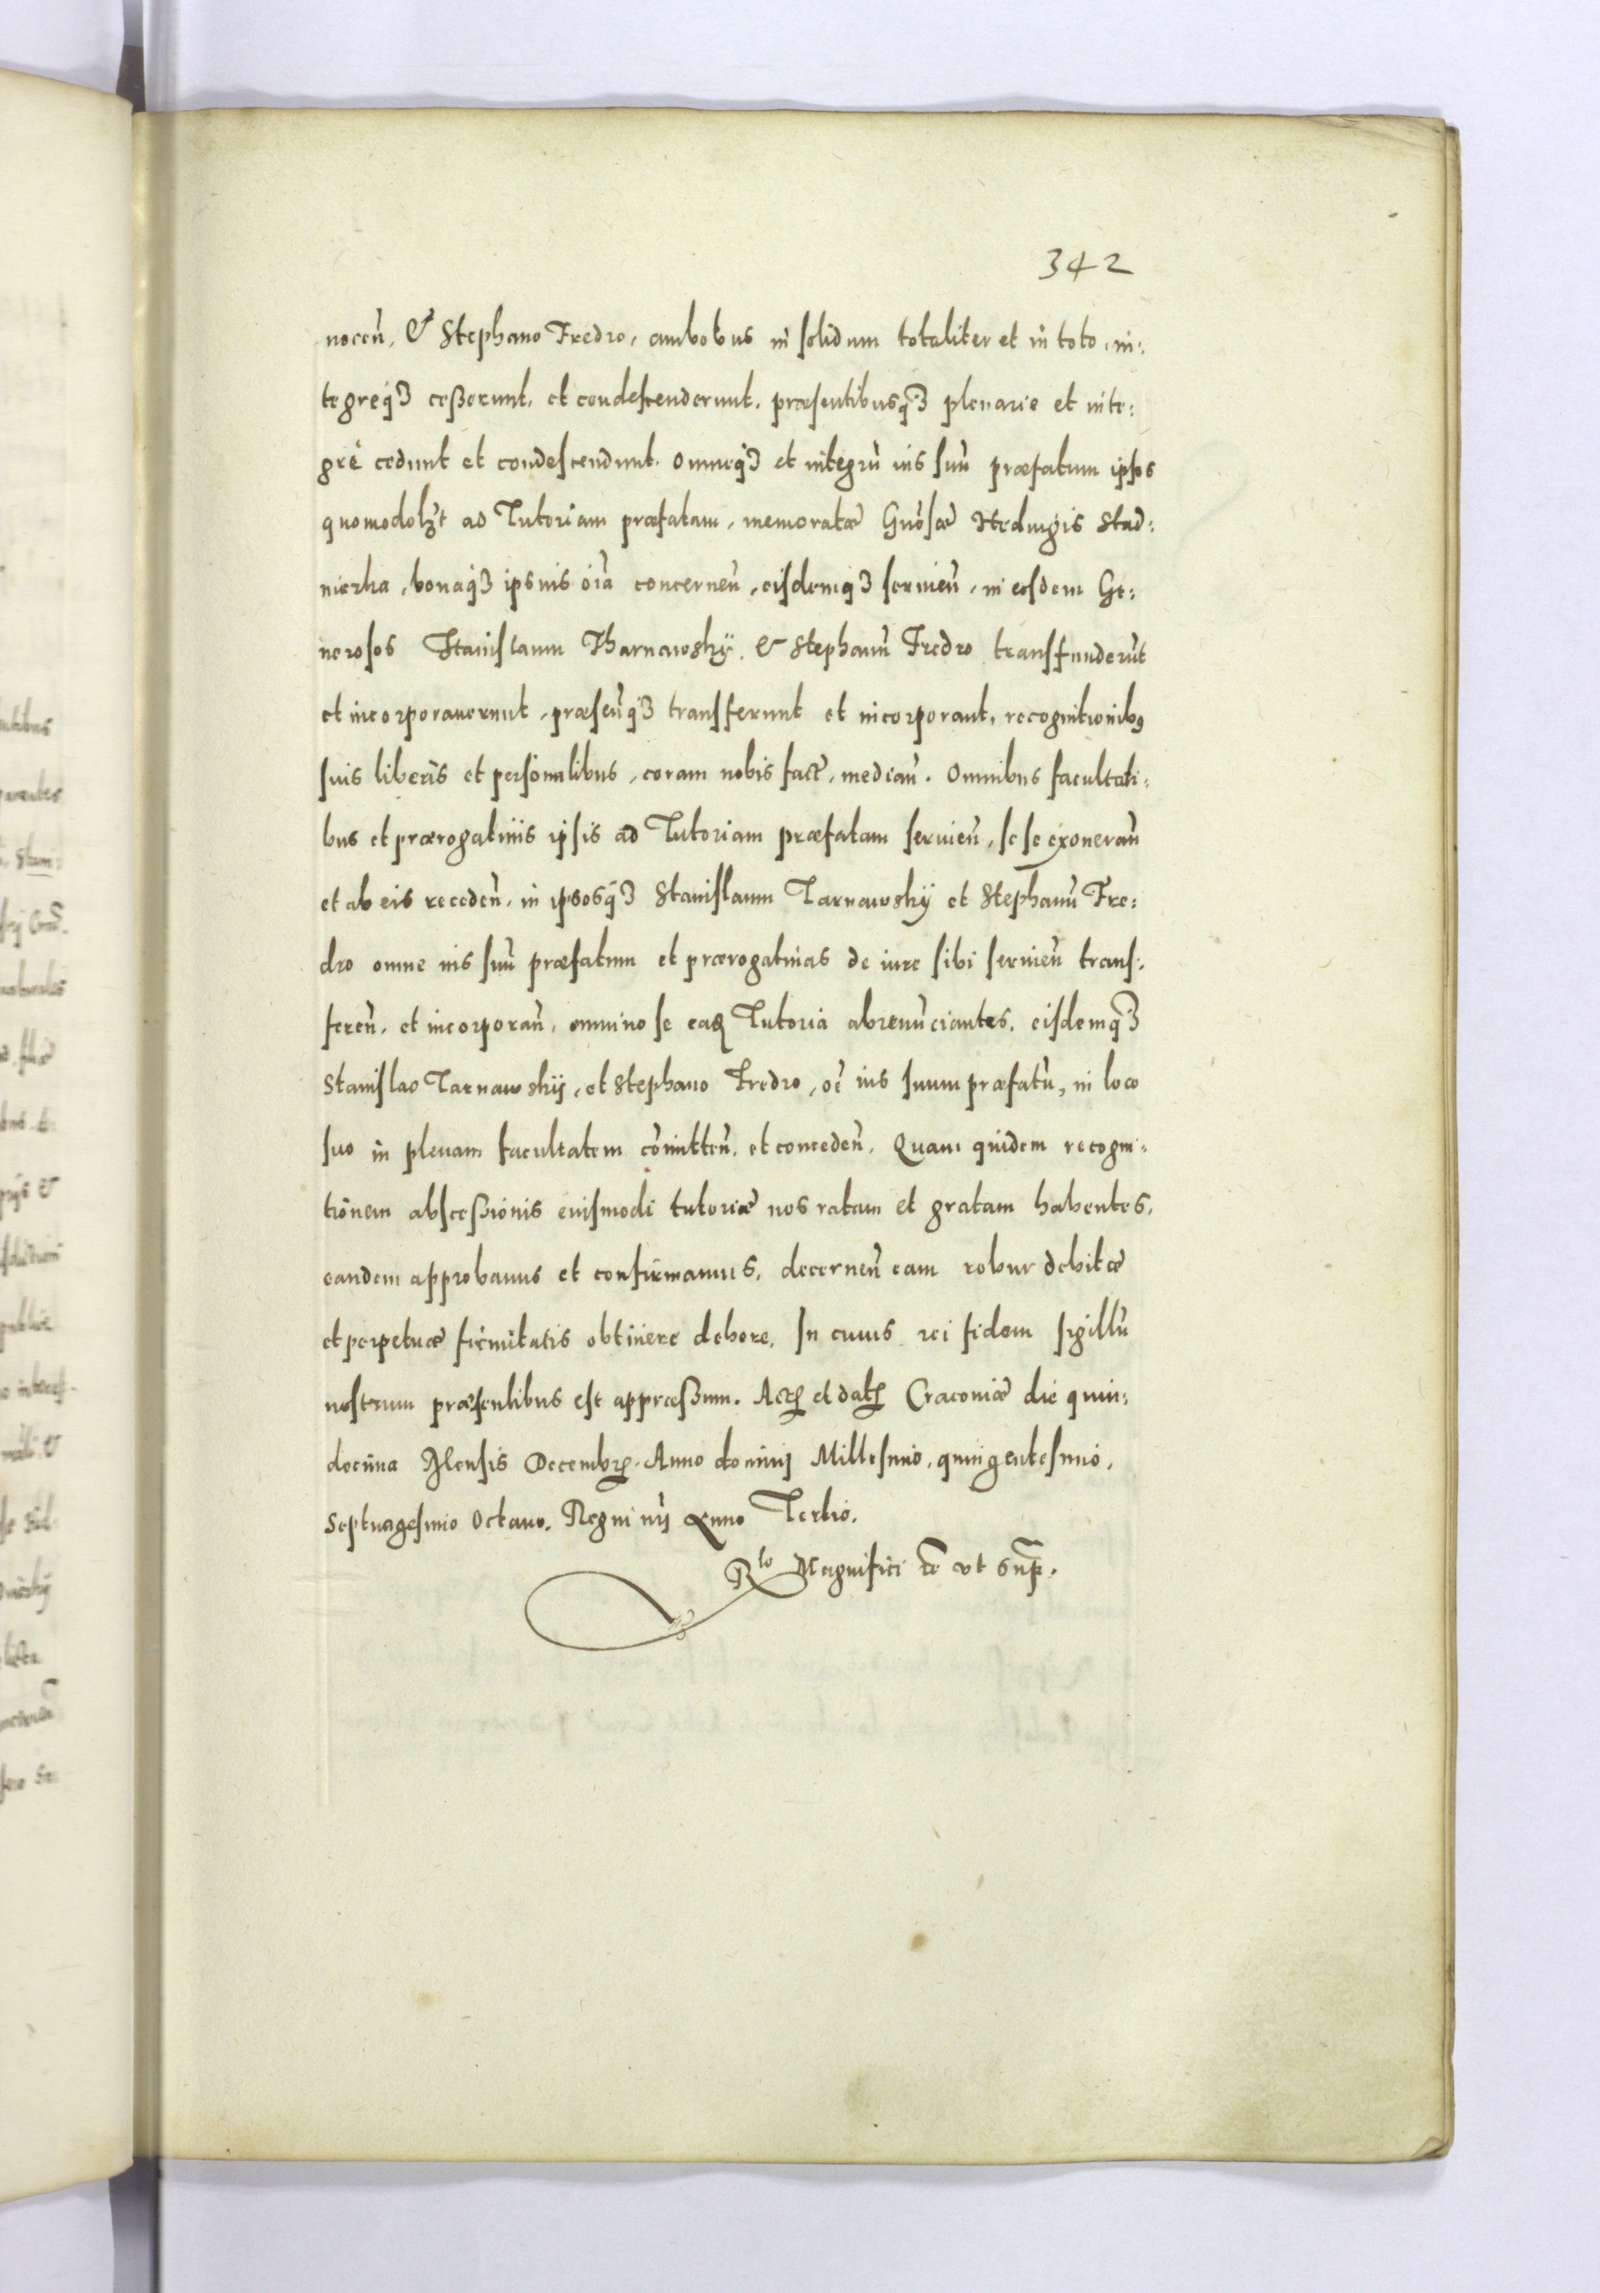 342
nocen̄, & Stephano Fredro, ambobus in solidum totaliter et in toto, in:
tegreq3 cesserunt, et condescenderunt, præsentibusq3 plenarie et inte:
gré cedunt et condescendunt. omneq3 et integrū ius suū præfatum ipsos
quomodolꝫt ad Tutoriam præfatam, memoratæ Gnōsæ Hedwigis Stad:
niczka, bonaq3 ipsius ōia concernen̄, eisdemq3 servien̄, in eosdem Ge:
nerosos Stanislaum Tharnawskÿ & Stephanū Fredro transfunderūt
et incorporauerunt, præsen̄q3 transferunt et incorporant, recognitionibꝯ
suis liberis et personalibus, coram nobis fact̄, median̄. Omnibus facultati:
bus et prærogatiuis ipsis ad Tutoriam præfatam seruien̄, se se exoneran̄
et ab eis receden̄, in ipsosq3 Stanislaum Tarnawskÿ et Stephanū Fre:
dro omne ius suū præfatum et prærogatiuas de iure sibi seruien̄ trans:
feren̄, et incorporan̄, omnino se eaꝝ Tutoria abrenūciantes, eisdemq3
Stanislao Tarnawskÿ, et Stephano Fredro, oē ius suum præfatū, in loco
suo in plenam facultatem cōmitten̄, et conceden̄, Quam quidem recogni:
tionem abscessionis euismodi tutoriæ nos ratam et gratam habentes,
eandem approbamus et confirmamus, decernen̄ eam robur debitæ
et perpetuæ firmitatis obtinere debere. In cuius rei fidem sigillū
nostrum præsentibus est appressum. Actꝝ et datꝝ Cracouiæ die quin:
decima Mensis Decembrꝭ. Anno dominj Millesimo, quingentesimo,
Septuagesimo Octauo. Regni nrj Anno Tertio.
Rlō Magnifici &c vt Supꝛ.